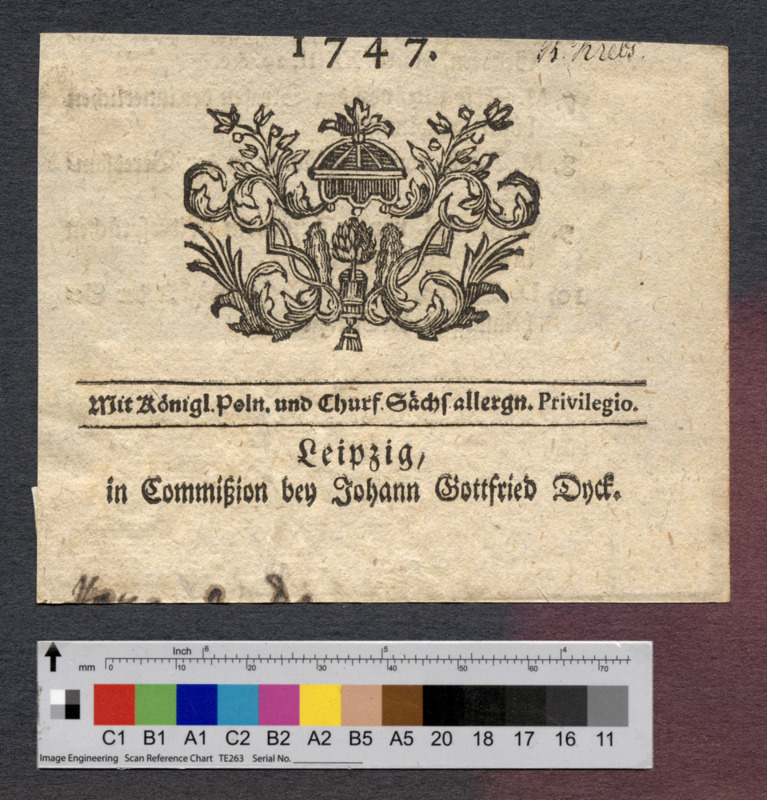 1747.
Krebs.
Mit Königl. Poln. und Churf. Sächs allergn. Privilegio.
Leipzig,
in Commißion bey Johann Gottfried Dyck.
Inch 6 5 4
mm 0 10 20 30 40 50 60 70
C1 B1 A1 C2 B2 A2 B5 A5 20 18 17 16 11
Image Engineering Scan Reference Chart TE263 Serial No.